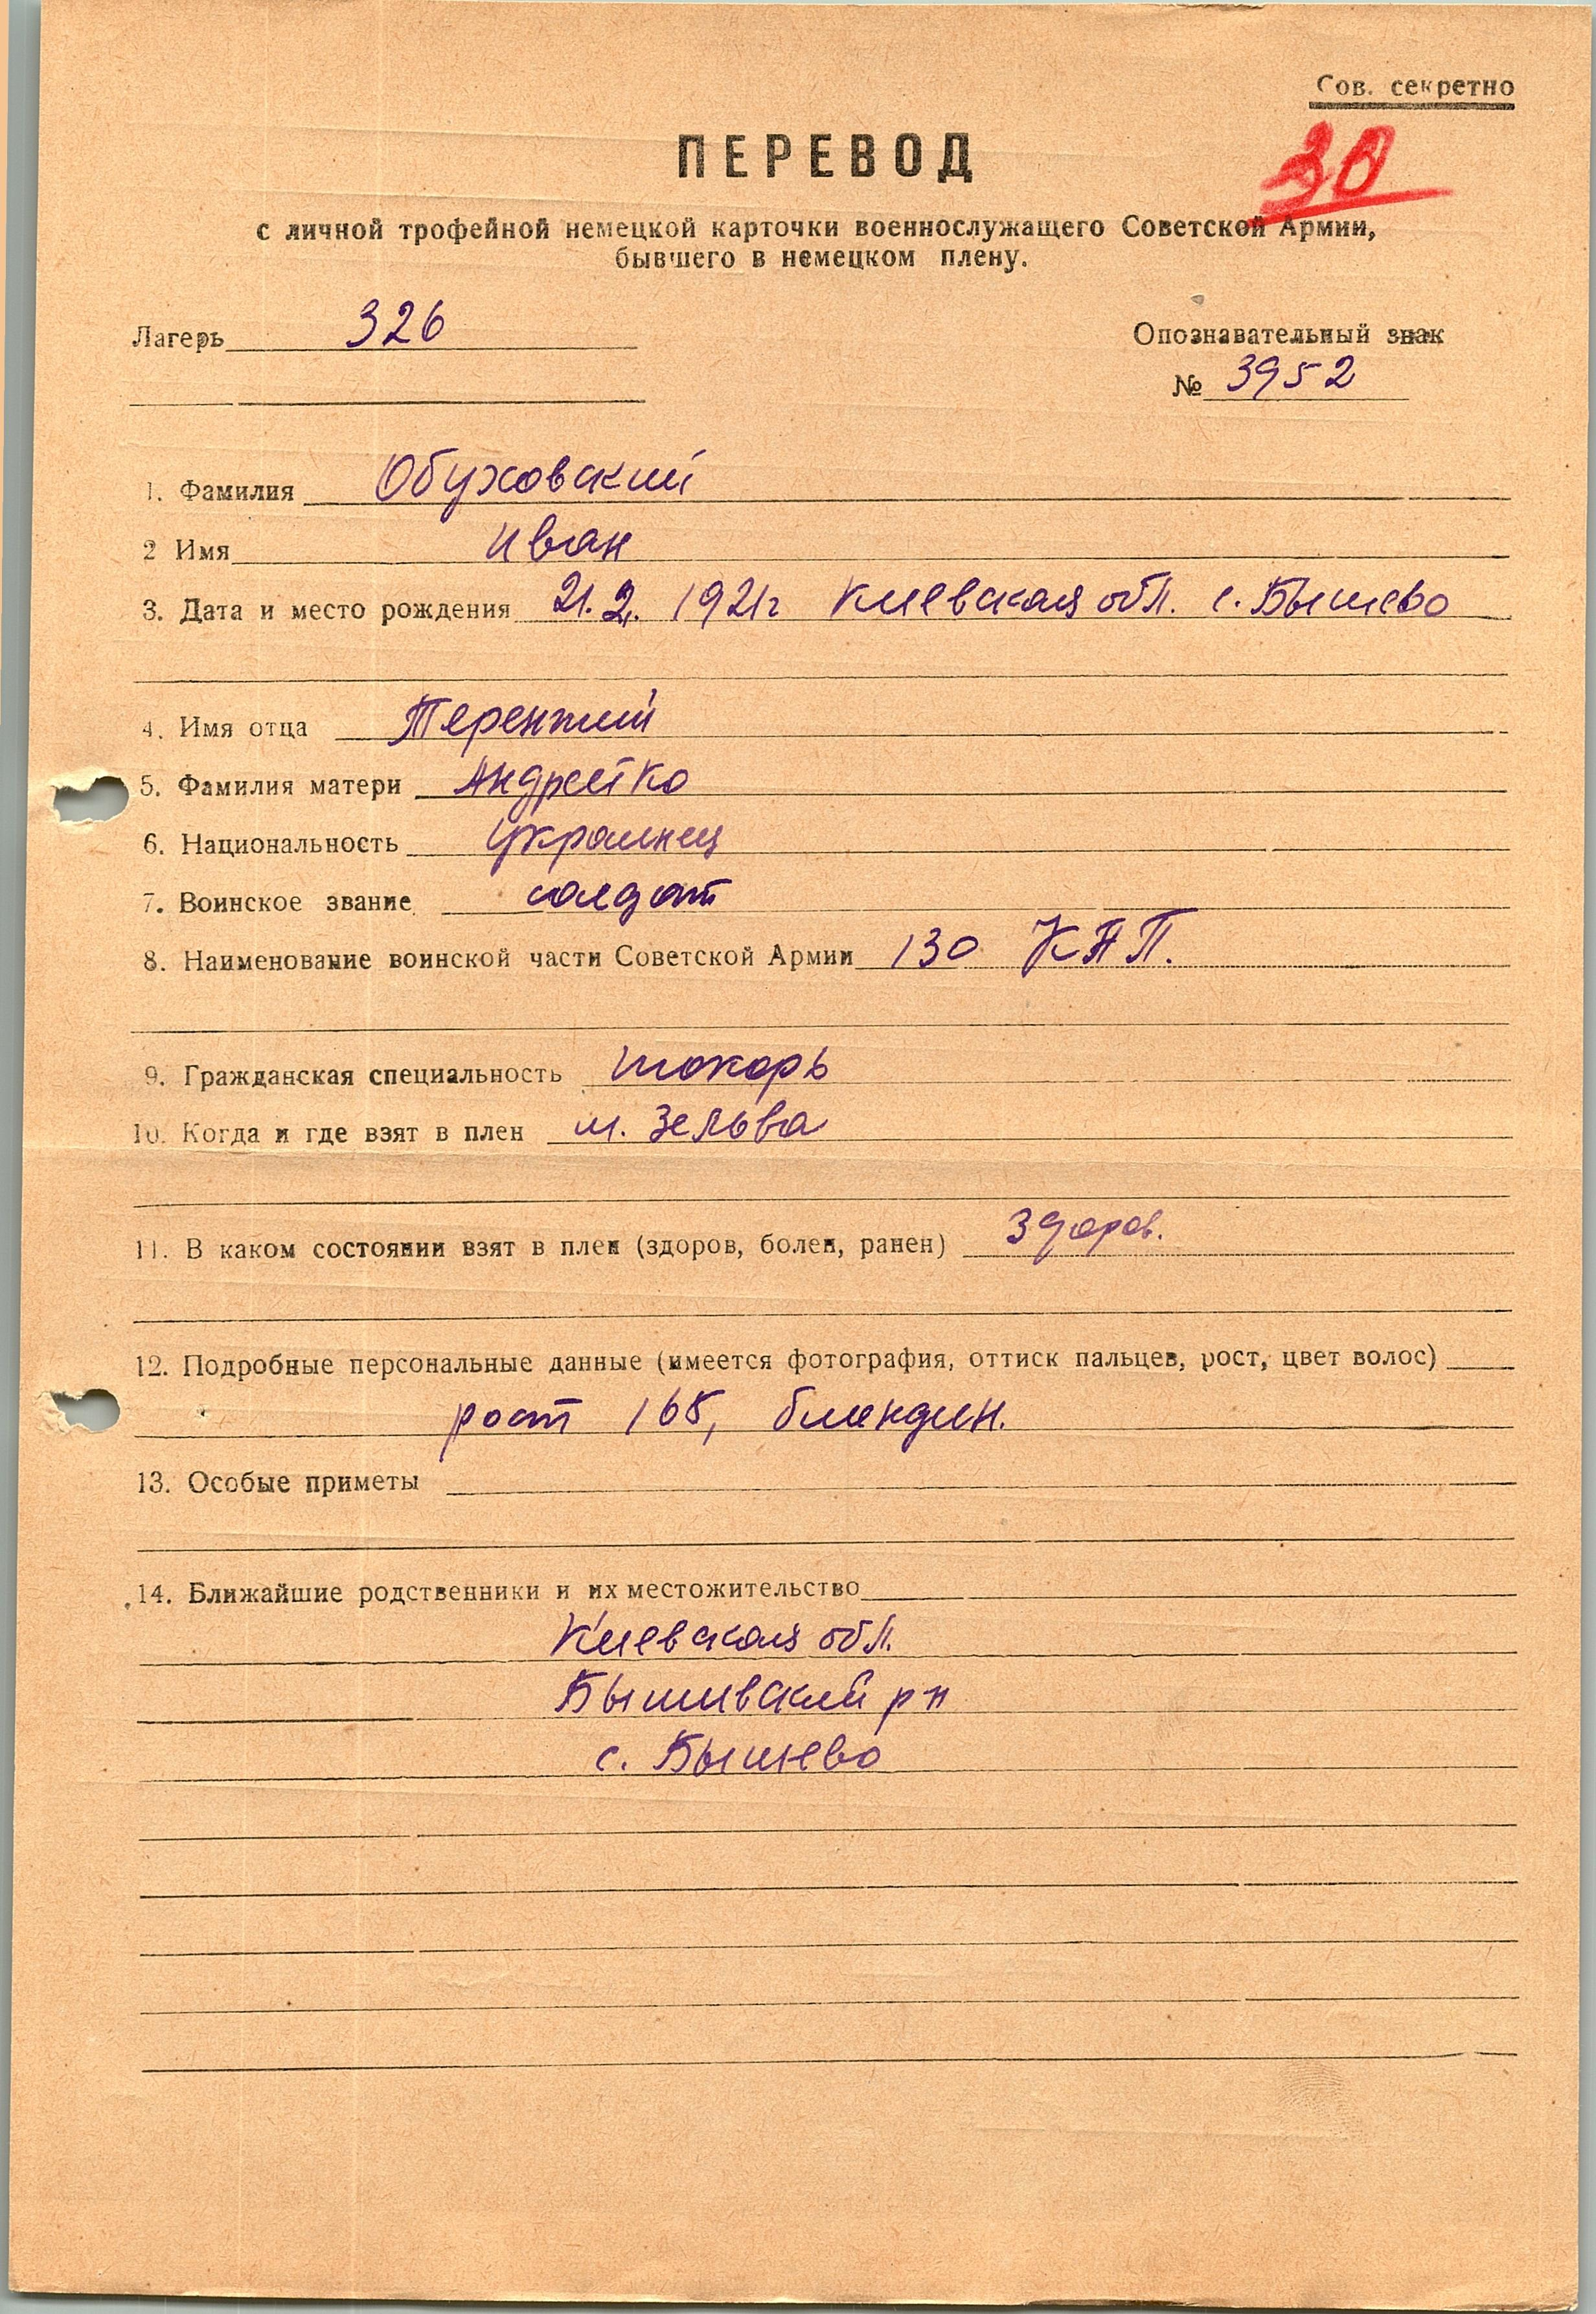 Сов. секретно
30
ПЕРЕВОД
с личной трофейной немецкой карточки военнослужащего Советской Армии,
бывшего в немецком плену.
Лагерь 326
Опознавательный знак
№ 3952
1. Фамилия Обуховский
2 Имя Иван
3. Дата и место рождения 21.2. 1921г Киевская обл. с. Бышево
4. Имя отца Терентий
5. Фамилия матери Андрейко
6. Национальность Украинец
7. Воинское звание солдат
8. Наименование воинской части Советской Армии 130 КАП.
9. Гражданская специальность токарь
10. Когда и где взят в плен м. Зельва
11. В каком состоянии взят в плен (здоров, болен, ранен) здоров.
12. Подробные персональные данные (имеется фотография, оттиск пальцев, рост, цвет волос)
рост 168, блондин.
13. Особые приметы
14. Ближайшие родственники и их местожительство
Киевская обл.
Бышивский рн
с. Бышево